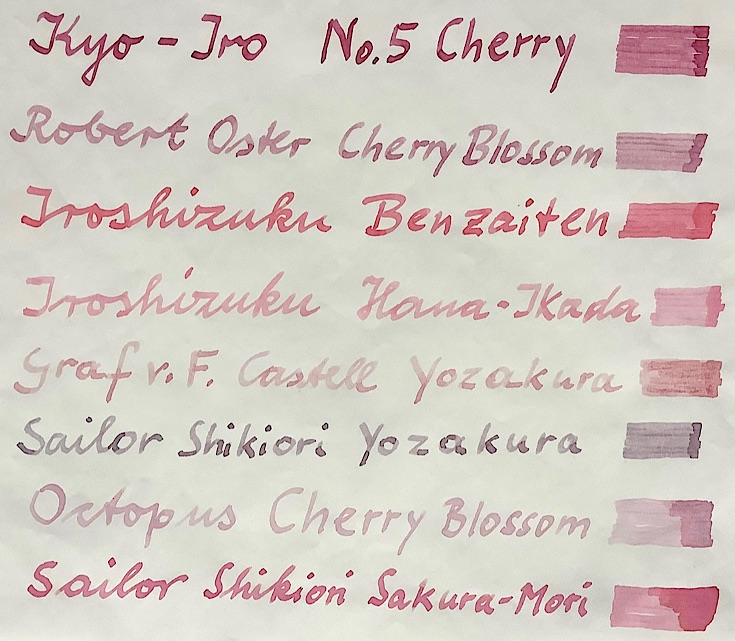 Kyo-Iro No.5 Cherry
Robert Oster Cherry Blossom
Iroshizuku Benzaiten
Iroshizuku Hana-Ikada
Graf v. F. Castell Yozakura
Sailor Shikiori Yozakura
Octopus Cherry Blossom
Sailor Shikiori Sakura-Mori